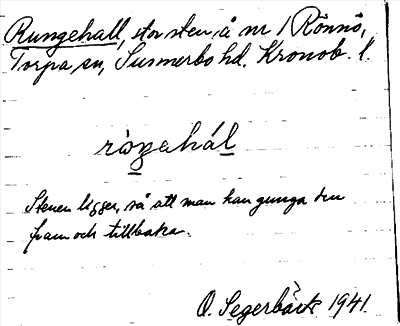 Rungehall, stor sten, å nr 1 Rönnö,
Torpa sn, Sunnerbo hd. Kronob. l.
ròŋehál
Stenen ligger, så att man kan gunga den
fram och tillbaka.
O. Segerbäck 1941.